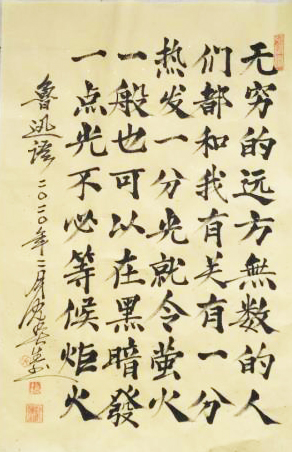 无穷的远方無数的人
们都和我有关有一分
热发一分光就令萤火
一般也可以在黑暗發
一点光不必等候炬火
鲁迅语 二〇二〇年二月